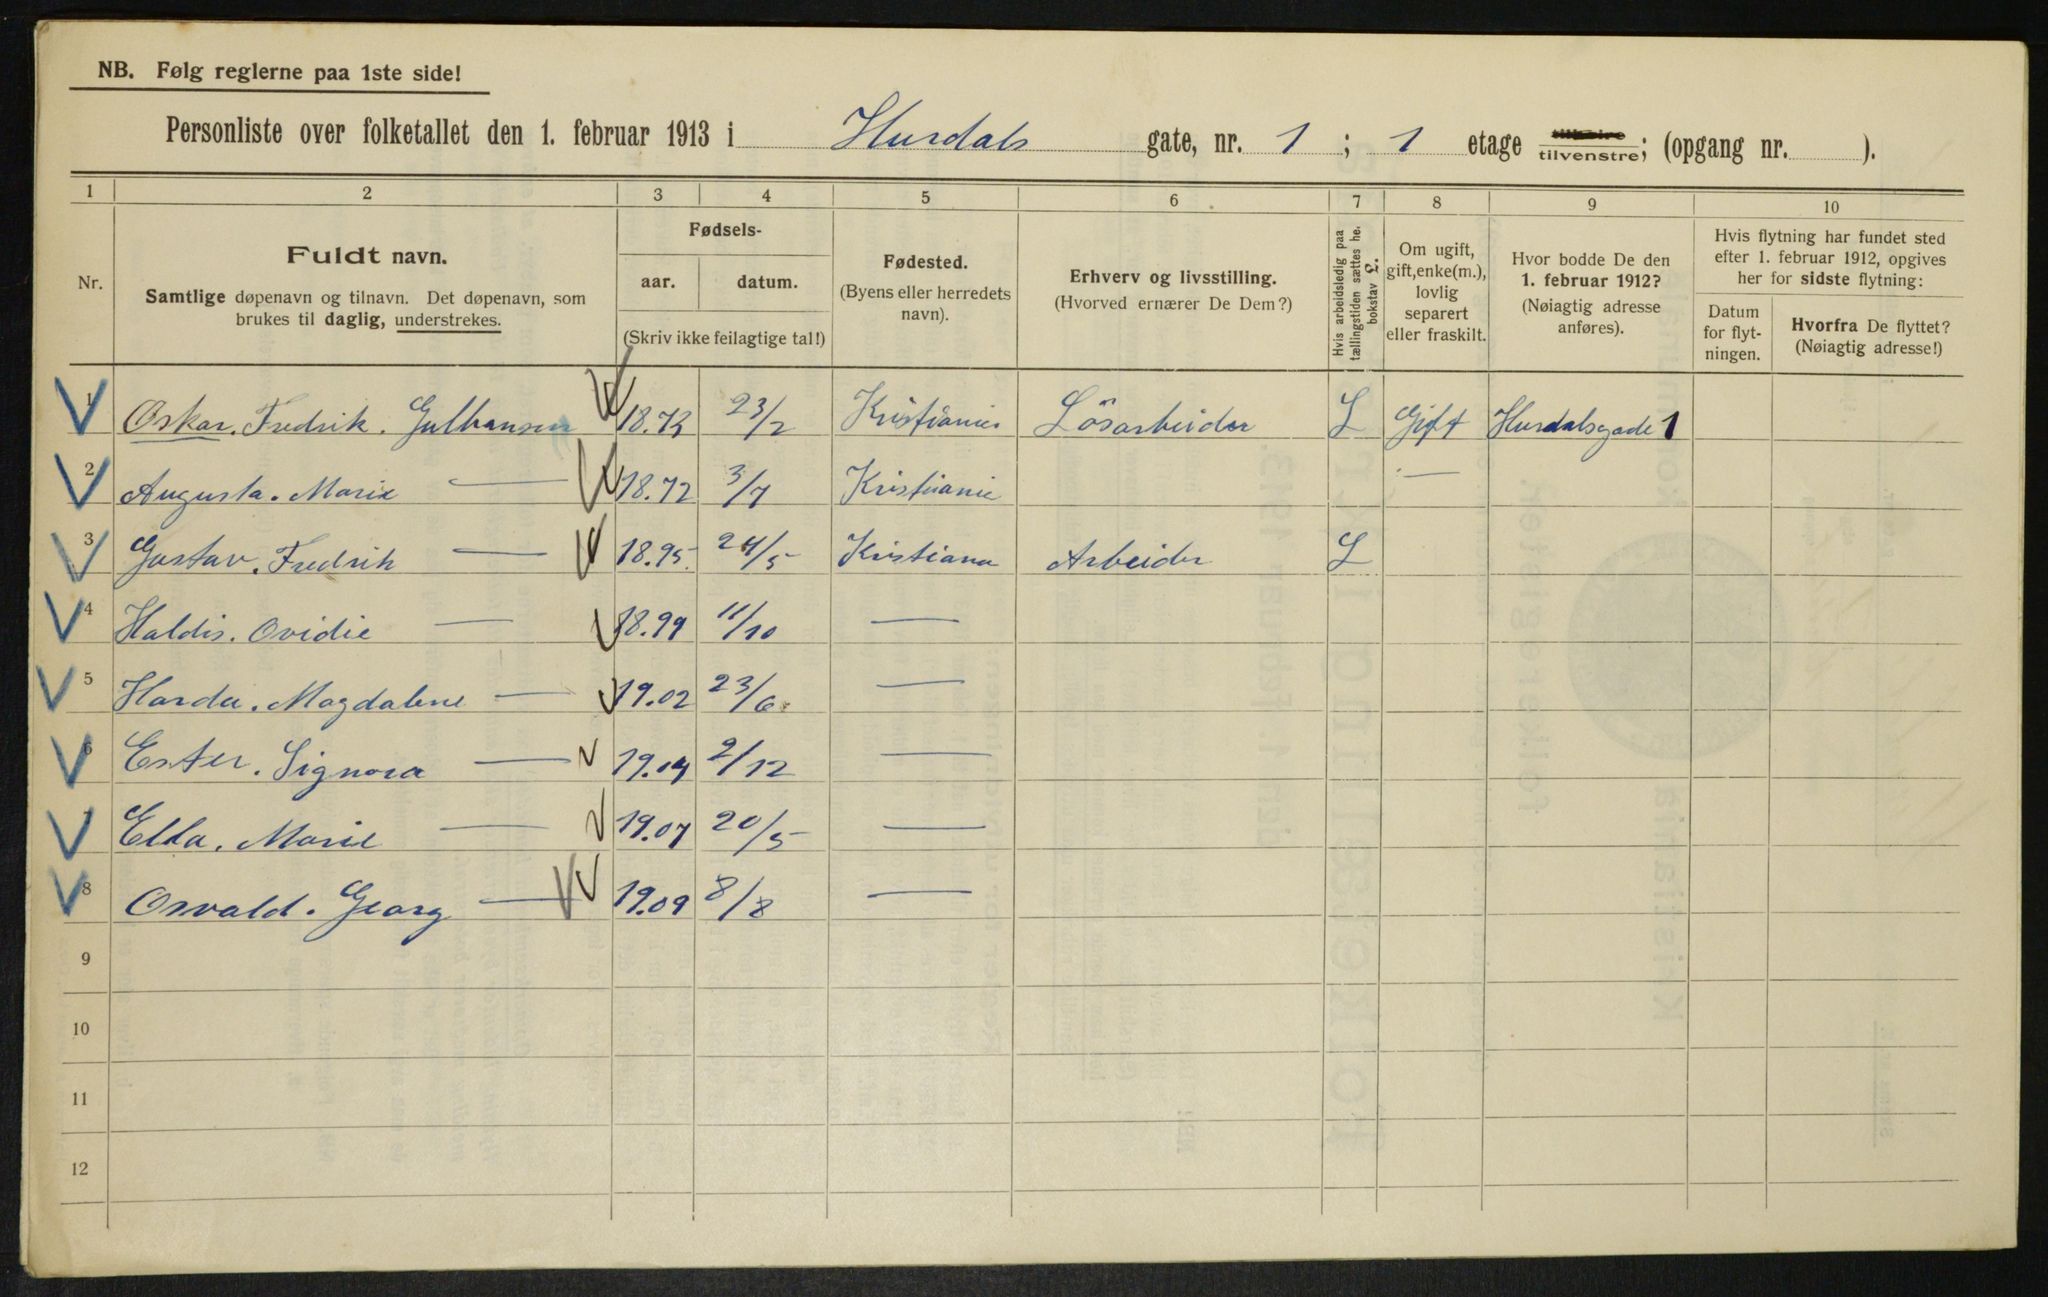 NB. Følg reglerne paa 1ste side!
Personliste over folketallet den 1. februar 1913 i Hurdals gate, nr. 1 ; 1 etage tilhøire tilvenstre; (opgang nr. ).
1 2 3 4 5 6 7 8 9 10
Nr.
Fuldt navn.
Samtlige døpenavn og tilnavn. Det døpenavn, som
brukes til daglig, understrekes.
Fødsels-
aar. datum.
(Skriv ikke feilagtige tal!)
Fødested.
(Byens eller herredets
navn).
Erhverv og livsstilling.
(Hvorved ernærer De Dem?)
Hvis arbeidsledig paa
tællingstiden sættes he.
bokstav L.
Om ugift,
gift, enke(m.),
lovlig
separert
eller fraskilt.
Hvor bodde De den
1. februar 1912?
(Nøiagtig adresse
anføres).
Hvis flytning har fundet sted
efter 1. februar 1912, opgives
her for sidste flytning:
Datum
for flyt-
ningen.
Hvorfra De flyttet?
(Nøiagtig adresse!)
1 Oskar. Fredrik. Gulbransen 18.73 23/2 Kristiania Lösarbeider L Gift Hurdalsgade 1
2 Augusta. Marie — 18.72 3/7 Kristianie —
3 Gustav. Fredrik — 18.95. 24/5 Kristiana Arbeider L
4 Haldis. Ovidie — 18.99 11/10 —
5 Harda. Magdalene — 19.02 23/6 —
6 Ester. Signora — 19.04 2/12 —
7 Elka. Marie — 19.07 20/5 —
8 Osvald. Georg — 19.09 8/8 —
9
10
11
12